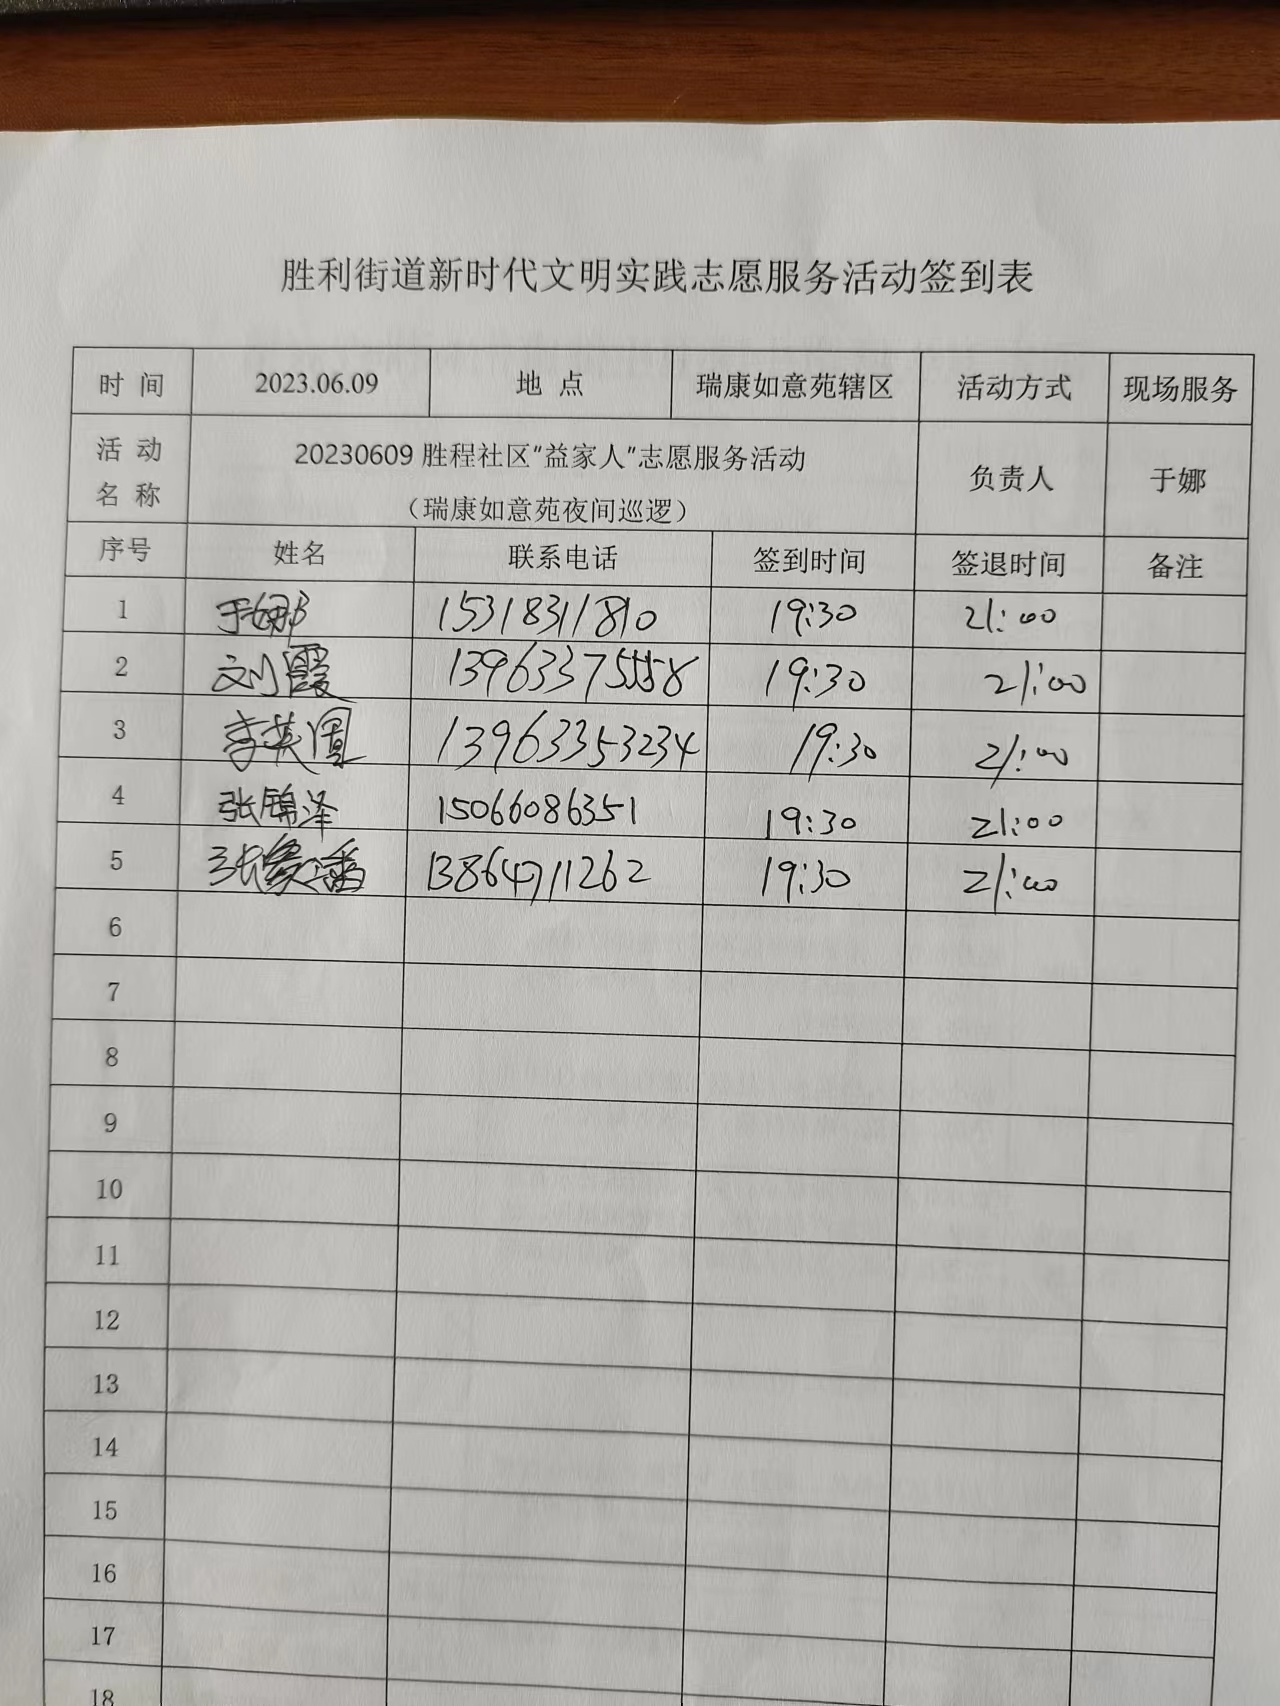 胜利街道新时代文明实践志愿服务活动签到表
时 间 2023.06.09 地 点 瑞康如意苑辖区 活动方式 现场服务
活 动 名 称 20230609 胜程社区“益家人”志愿服务活动 负责人 于娜
（瑞康如意苑夜间巡逻）
序号 姓名 联系电话 签到时间 签退时间 备注
1 于娜 15318311810 19:30 21:00
2 刘霞 19:30 21:00
3 李英 13963353234 19:30 21:00
4 张锦泽 15066086351 19:30 21:00
5 张 13864711262 19:30 21:00
6
7
8
9
10
11
12
13
14
15
16
17
18